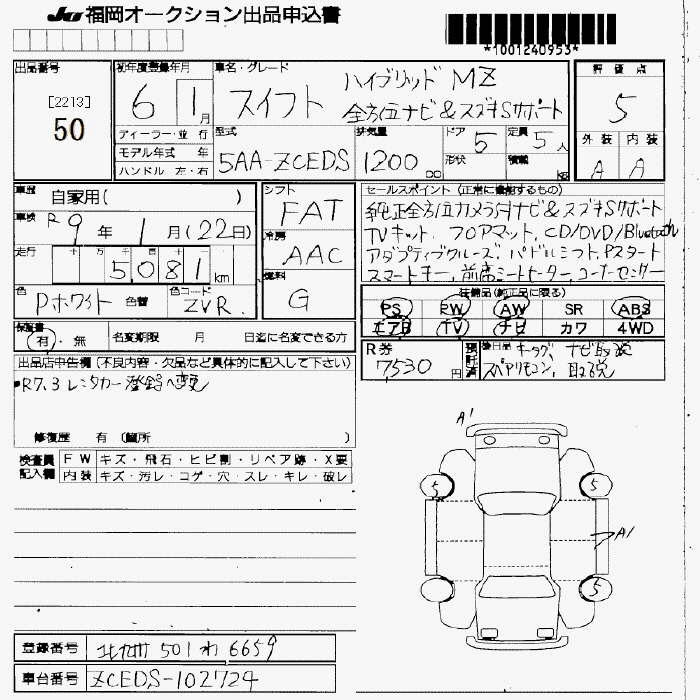 JU 福岡オークション出品申込書
*1001240953*
出品番号
[2213]
50
初年度登録年月
6 1月
ディーラー・並行
モデル年式 年
ハンドル 左・右
車名・グレード
スイフト
ハイブリッド MZ
全方位ナビ&スズキSサポート
型式
5AA-ZCEDS
排気量
1200 cc
ドア
5
形状
定員
5人
積載
kg
評価点
5
外装 内装
A A
車歴
自家用( )
車検
R9年 1月(22日)
走行
十 万 千 百 十 一
5,081 km
色
Pホワイト
色替
色コード
ZVR.
保証書
有・無
名変期限 月 日迄に名変できる方
シフト
FAT
冷房
AAC
燃料
G
セールスポイント(正常に機能するもの)
純正全方位カメラ付ナビ&スズキSサポート
TVキット、フロアマット、CD/DVD/Bluetooth
アダプティブクルーズ、パドルシフト、Pスタート
スマートキー、前席シートヒーター、コーナーセンサー
装備品(純正品に限る)
PS PW AW SR ABS
エアB TV ナビ カワ 4WD
R券
7530円
預託済
後日品 キータグ、ナビ取説
スペアリモコン、取説
出品店申告欄(不良内容・欠品など具体的に記入して下さい)
•R7.3 レンタカー登録へ変更
修復歴 有(箇所 )
検査員記入欄
FW キズ・飛石・ヒビ割・リペア跡・X要
内装 キズ・汚レ・コゲ・穴・スレ・キレ・破レ
A1
5
5
A1
5
登録番号
501 わ 6659
車台番号
ZCEDS-102724